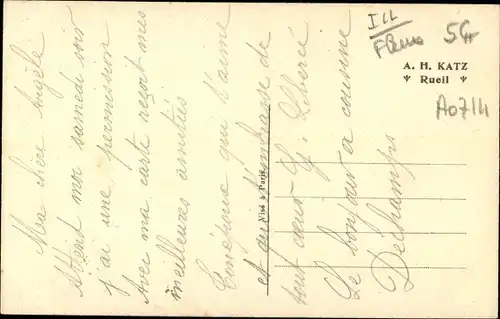 Ma chère Angèle
Attent moi samedi soir
j'ai une permission
Avec ma carte reçoit mes
meilleures amitiés
qui t'aime
et qui t'embrasse de
tout cœur G. Liberié
Le bonjour a cousine
Dechamps
Visé à Paris
A. H. KATZ
Rueil
Ill
5G
A0714